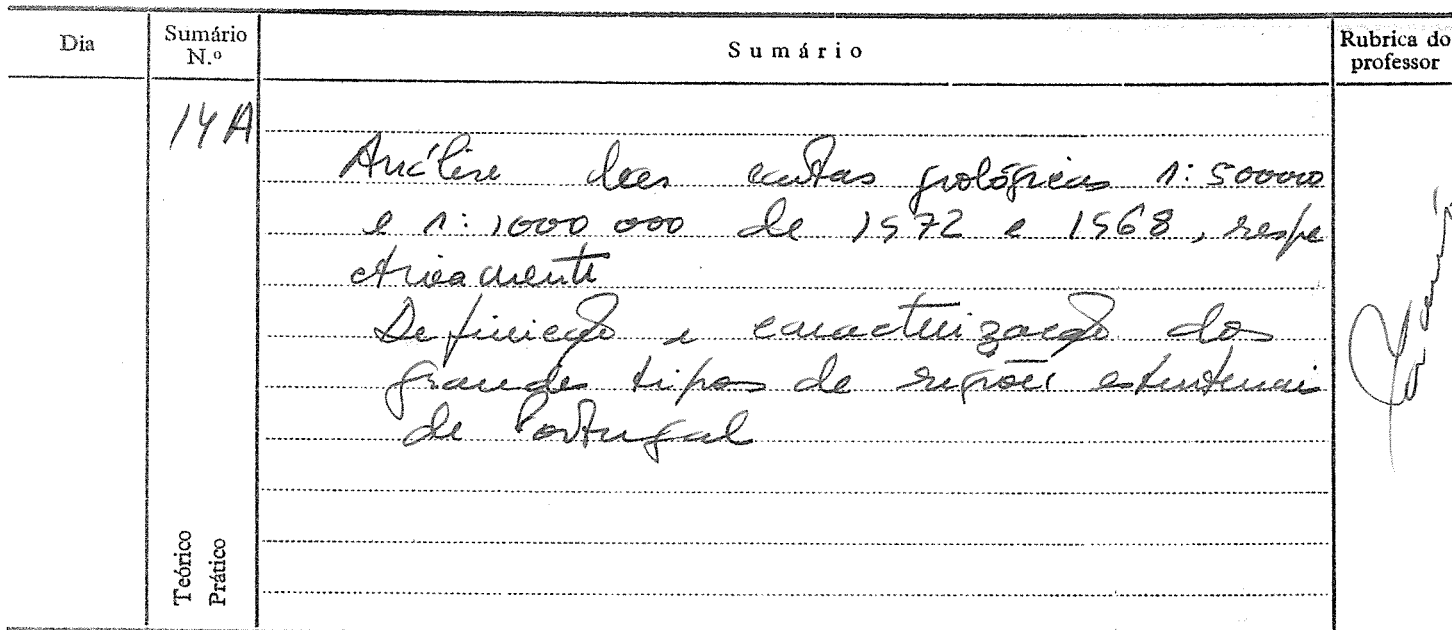 Dia
Sumário N.º
Sumário
Rubrica do professor
14A
Análise das cartas geológicas 1:500000
e 1:1000 000 de 1972 e 1968, respe
ctivamente
Definição e caracterização dos
grandes tipos de regiões estruturais
de Portugal
Teórico
Prático